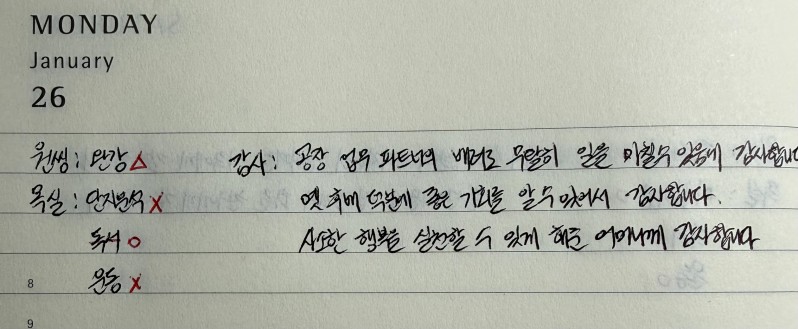 MONDAY
January
26
원씽 : 완강 △ 감사 : 공장 업무 파트너의 배려로 무탈히 일을 마칠수 있음에 감사합니다
목실 : 단지분석 X 옛 후배 덕분에 좋은 기회를 알 수 있어서 감사합니다.
독서 O 사소한 행복을 실천할 수 있게 해준 어머니께 감사합니다
8 운동 X
9